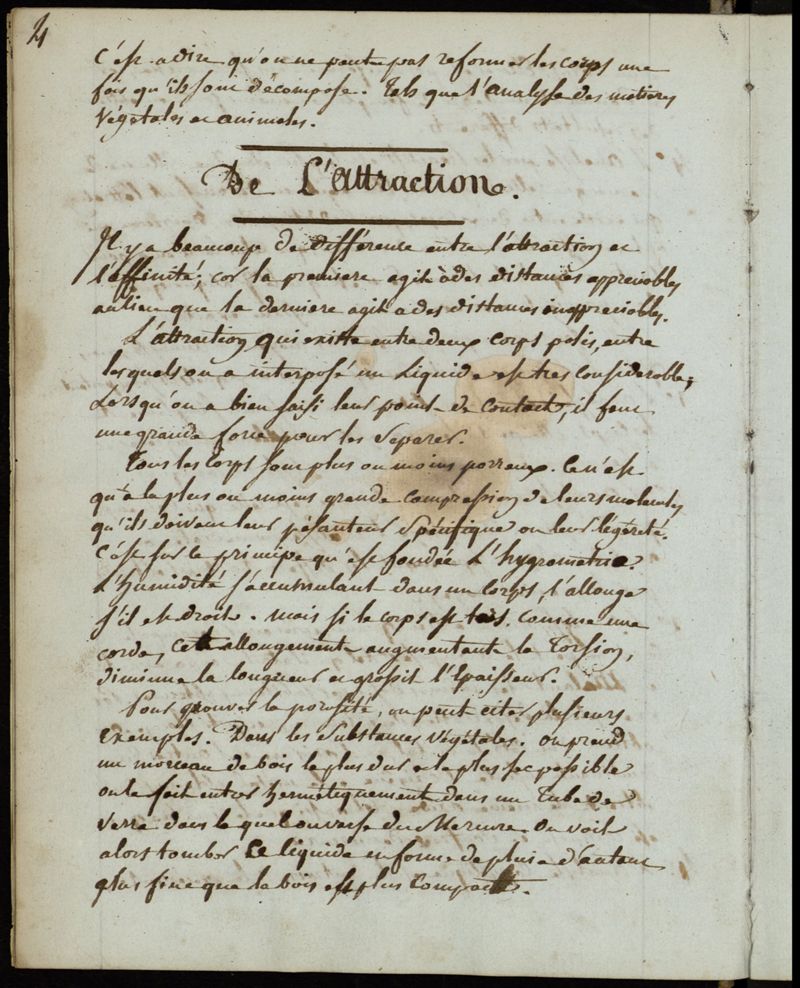 4
c'est a dire qu'on ne peut pas reformer les corps une
fois qu'ils sont décomposé. Tels que l'analysse des matieres
végétales et animales.
De L'attraction.
Il y a beaucoup de différence entre l'attraction et
l'affinité; car la premiere agit à des distances appreciables
au lieu que la derniere agit a des distances inappreciables.
L'attraction qui existe entre deux corps polis, entre
lesquels on a interposé un Liquide est tres considerable;
Lorsqu'on a bien saisi leur point de Contact, il faut
une grande force pour les separer.
Tous les Corps sont plus ou moins porreux. Ce n'est
qu'à la plus ou moins grande compression de leurs molecules
qu'ils doivent leur pésanteur spécifique ou leur légéreté.
C'est sur ce principe qu'est fondée L'hygrometrie.
L'humidité s'accumulant dans un Corps, l'allonge
s'il est droit. mais si le corps est tors, comme une
corde, cet allongement augmentant la Torsion,
diminue la longueur et grossit l'Epaisseur.
Pour prouver la porosité, on peut citer plusieurs
exemples. Dans les substances végétales. on prend
un morceau de bois le plus dur et le plus sec possible
on le fait entrer hermétiquement dans un Tube de
verre dans le quel on verse du Mercure. On voit
alors tomber Le liquide en forme de pluie d'autant
plus fine que le bois est plus Compacte.